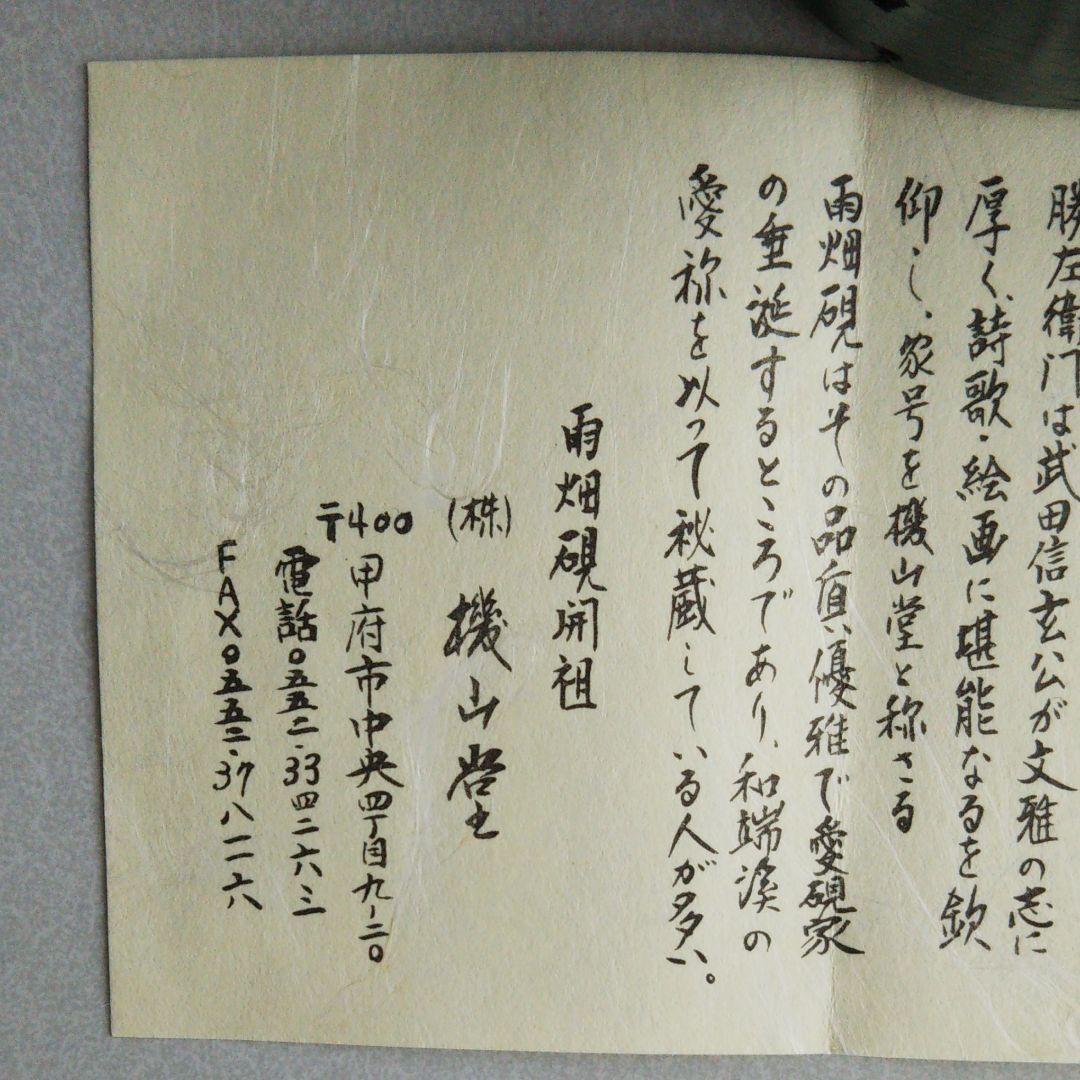 勝左衛门は武田信玄公が文雅の志に
厚く、詩歌・絵画に堪能なるを欽
仰し、家号を機山堂と称さる
雨畑硯はその品質、優雅で愛硯家
の垂涎するところであり、和端渓の
愛称を以って秘蔵している人が多い。
雨畑硯開祖
(株) 機山堂
〒400 甲府市中央四丁目九-二〇
電話〇五五二・33四二六三
FAX〇五五二・37八一一六